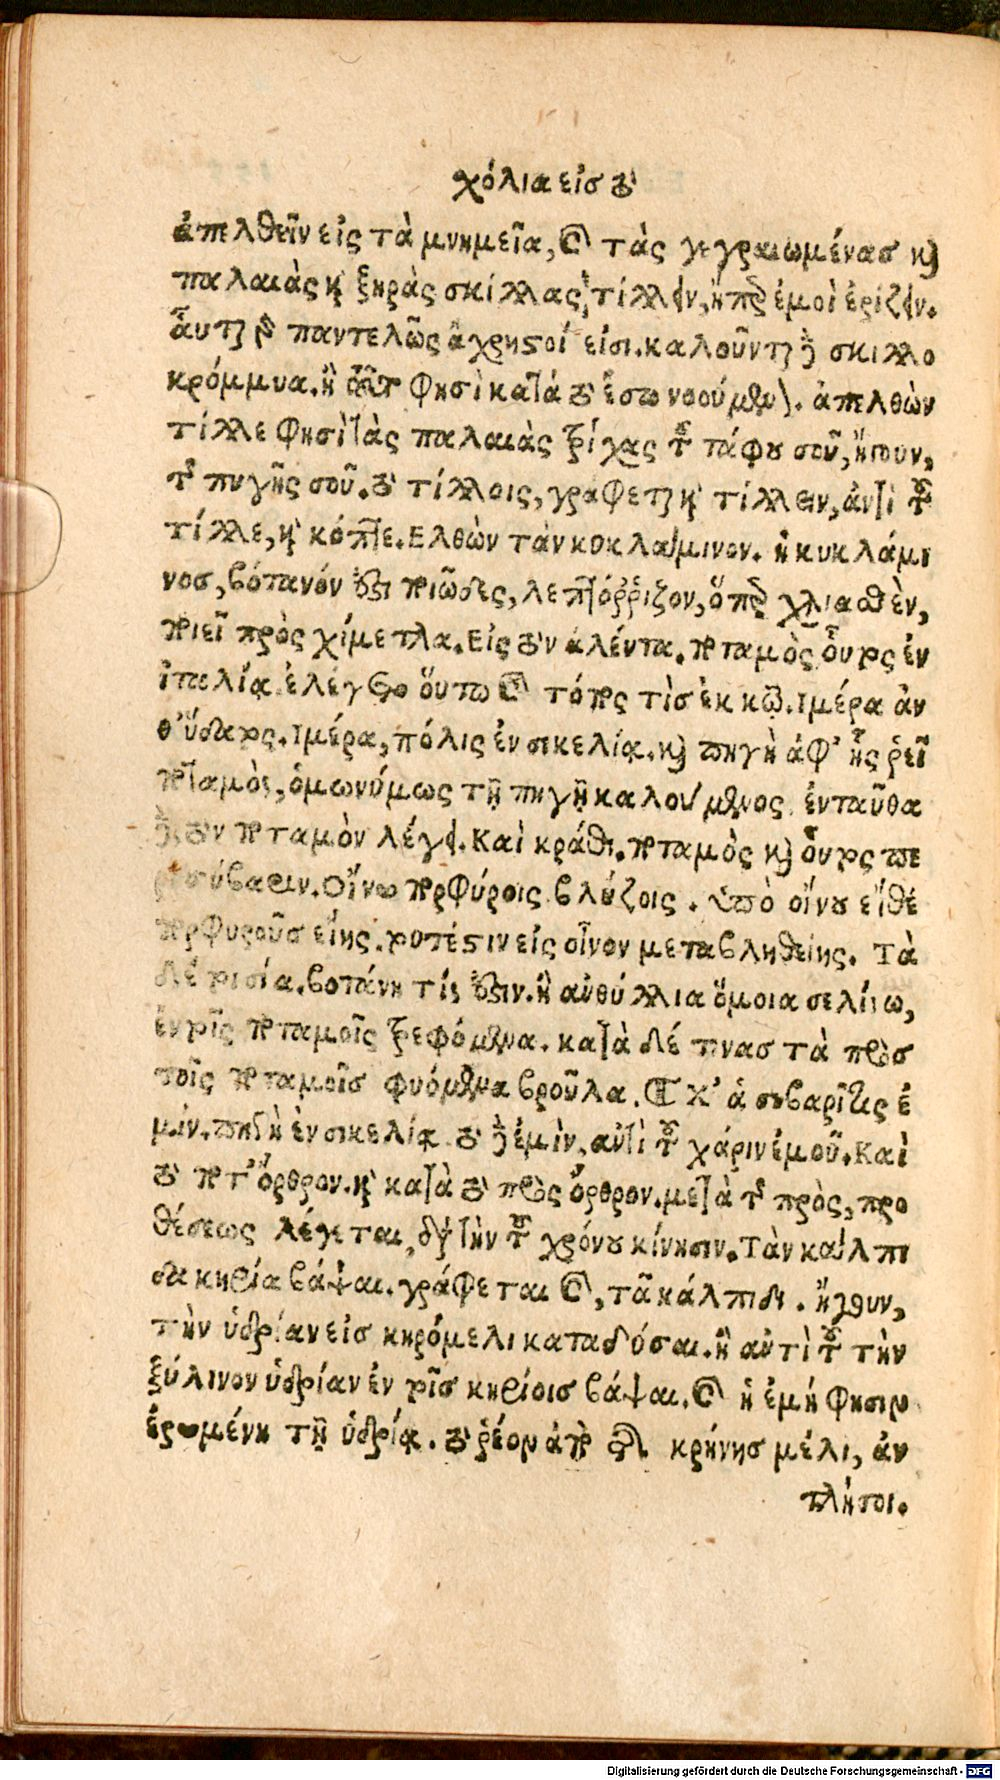 χόλια εἰσ τὸ
ἀπελθεῖν εἰς τὰ μνημεῖα, καὶ τὰς γεγραιωμένασ καὶ
παλαιὰς καὶ ξηρὰς σκίλλας, τίλλειν, ἤπερ ἐμοὶ ἐρίζειν.
αὗται γὰρ παντελῶς ἄχρηστοί εἰσι. καλοῦνται δὲ σκιλλο
κρόμμυα. ἢ φησὶ κατὰ τὸ ἔσω νοούμενον. ἀπελθὼν
τίλλε φησὶ τὰς παλαιὰς τρίχας τοῦ τάφου σοῦ, ἤγουν,
τῆς πυγῆς σοῦ. τὸ τίλλοις, γράφεται καὶ τίλλειν, ἀντὶ τοῦ
τίλλε, καὶ κόπτε. Ελθὼν τὰν κυκλάμινον. ἡ κυκλάμι
νοσ, βότανόν ἐστι ποιῶδες, λεπτόῤῥιζον, ὅπερ χλιαθὲν,
ποιεῖ πρὸς χίμετλα. Εἰς τὸν ἀλέντα. ποταμὸς οὗτος ἐν
ἰταλίᾳ ἐλέγετο οὕτω καὶ τόπος τὶσ ἐκ κῶ. Ιμέρα ἀν
θ' ὕδατος. Ιμέρα, πόλις ἐν σικελίᾳ. καὶ πηγὴ ἀφ' ἧς ῥεῖ
ποταμὸς, ὁμωνύμως τῇ πηγῇ καλούμενος ἐνταῦθα
δὲ τὸν ποταμὸν λέγει. Καὶ κράθι. ποταμὸς καὶ οὗτος πε
ρὶ σύβασιν. Οἴνω πορφύροις βλύζοις. ὑπὸ οἴνου εἴθε
πορφυροῦσ εἴης. τουτέστιν εἰς οἶνον μεταβληθείης. Τὰ
δέ τοι σία. βοτάνη τίς ἐστιν. ἢ ἀνθύλλια ὅμοια σελίνω,
ἐν τοῖς ποταμοῖς τρεφόμενα. κατὰ δέ τινασ τὰ πρὸσ
τοῖς ποταμοῖσ φυόμενα βροῦλα. καὶ χ' ἁ συβαρῖτις ἐ
μίν. πηγὴ ἐν σικελίᾳ. τὸ δὲ ἐμὶν, ἀντὶ τοῦ χάριν ἐμοῦ. Καὶ
τὸ ποτ' ὄρθρον. καὶ κατὰ τὸ πρὸς ὄρθρον. μετὰ τῆς πρὸς, προ
θέσεως λέγεται, διὰ τὴν τοῦ χρόνου κίνησιν. Τὰν κάλπι
δα κηρία βάψαι. γράφεται καὶ, τᾶ κάλπιδι. ἤγουν,
τὴν ὑδρίαν εἰσ κηρόμελι καταδύσαι. ἢ ἀντὶ τοῦ τὴν
ξύλινον ὑδρίαν ἐν τοῖσ κηρίοισ βάψαι. καὶ ἡ ἐμή φησιν
ἐρωμένη τῇ ὑδρίᾳ. τὸ ῥέον ἀπὸ τῆς κρήνησ μέλι, ἀν
τλήτοι.
Digitalisierung gefördert durch die Deutsche Forschungsgemeinschaft - DFG